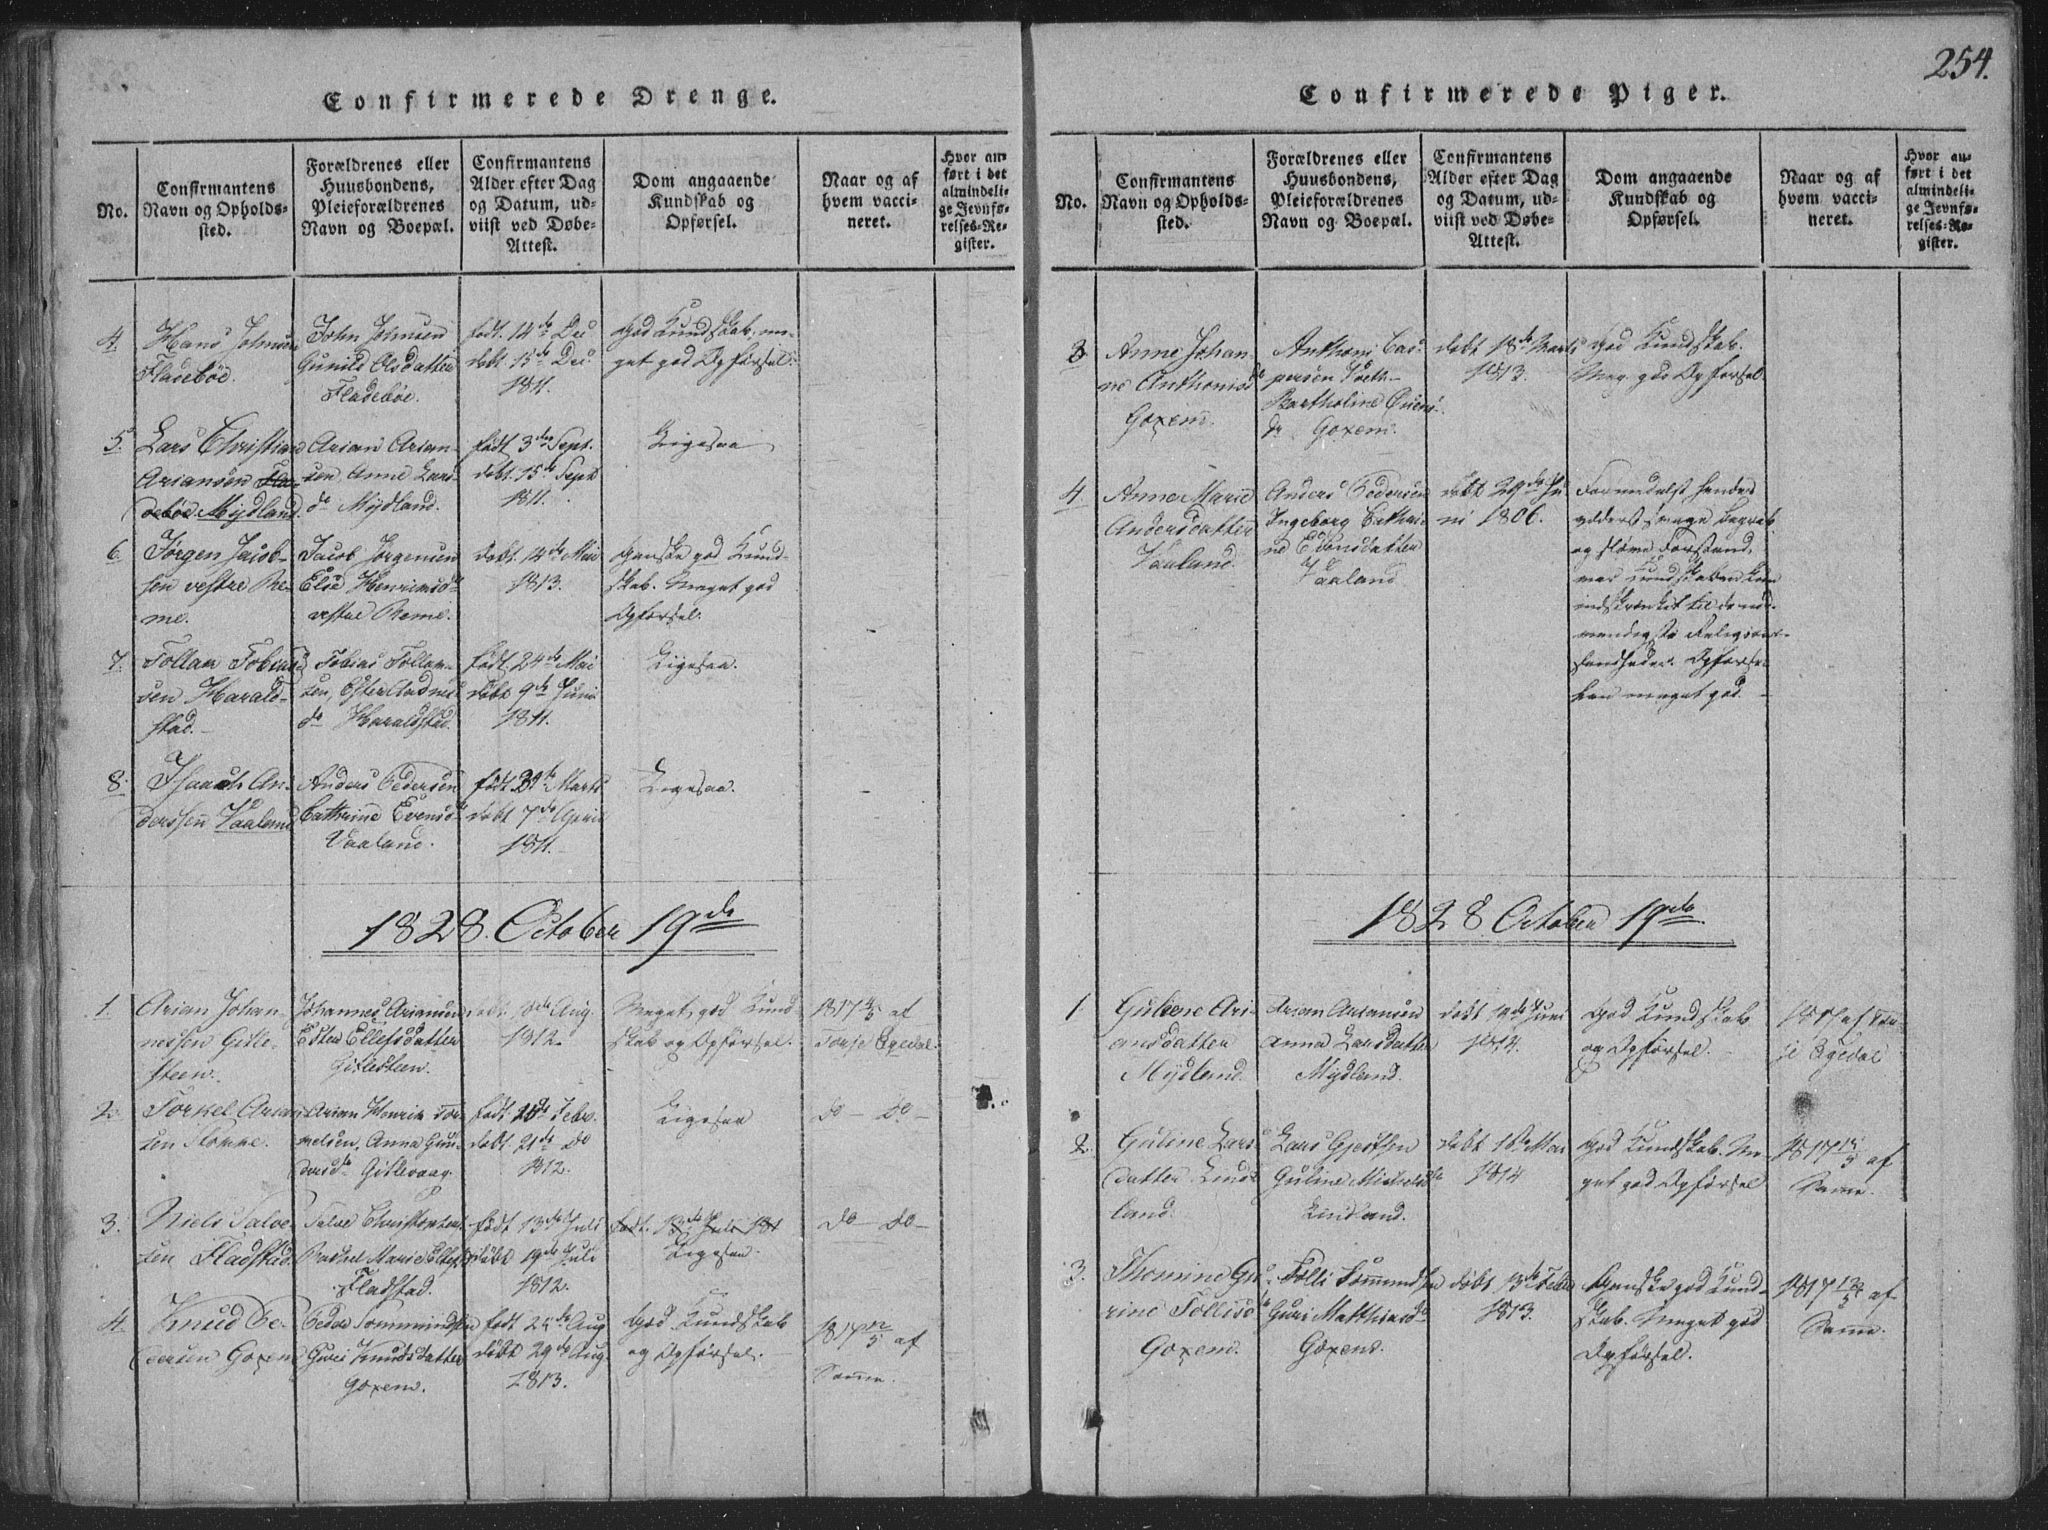 254.
Confirmerede Drenge.
No.
Confirmantens
Navn og Opholds-
sted.
Forældrenes eller
Huusbondens,
Pleieforældrenes
Navn og Boepæl.
Confirmantens
Alder efter Dag
og Datum, ud-
viist ved Døbe-
Attest.
Dom angaaende
Kundskab og
Opførsel.
Naar og af
hvem vacci-
neret.
Hvor an-
ført i det
almindeli-
ge Jevnfø-
relses-Re-
gister.
4.
Hans Johnsen
Fladebøe.
John Johnsen
Gunild Olsdatter
Fladebøe.
født 14de Dec
døbt. 15de Dec.
1811.
God Kundskab, me-
get god Opførsel.
5.
Lars Christian
Ariansen Fla-
debøe Mydland.
Arian Arian-
sen, Anne Lars
dr Mydland.
født 3die Sept.
døbt. 15de Sept
1811.
Ligesaa
6.
Jørgen Jacob-
sen vestre Re-
me.
Jacob Jørgensen
Else Henriksd
vestre Reme.
døbt. 14de Mai
1813.
Ganske god Kund-
skab. Meget god
Opførsel.
7.
Tollan Tobias
sen Harald-
stad.
Tobias Tollan-
sen,
dr Haraldstad.
født. 24de Mai
døbt 9de Juni
1811.
Ligesaa.
8.
Isaach An-
derssen Vaaland
Anders Pedersen
Cathrine Evensd
Vaaland.
født. 31te Marts
døbt 7de April
1811.
Ligesaa.
1828. October 19de
1.
Arian Johan-
nessen Gitle-
steen.
Johannes Ariansen
Ester Ellefsdatter
Gitlesteen.
døbt. Aug.
1812.
Meget god Kund-
skab og Opførsel.
1817 4/5 af
Tonje Egedal.
2.
Torkel Arian
sen
Arian Henrik
Anna Gun
dersdr Gitlevaag.
født. Febr.
døbt. 21de do
1812.
Ligesaa
do — do —
3.
Niels Salve
sen Fladstad.
Salve Christensen
Rachel Marie Ellefs
Fladstad.
født 13de Juli
døbt 19de Juli
1812.
født. 13de Juli 181
Ligesaa.
do — do —
4.
Knud Pe-
dersen Goxem
Peder Sommundsen
Guri Knudsdatter
Goxem.
født 24de Aug
døbt 29de Aug.
1813.
God Kundskab
og Opførsel.
1817 12/5 af
Samme.
Confirmerede Piger.
No.
Confirmantens
Navn og Opholds-
sted.
Forældrenes eller
Huusbondens,
Pleieforældrenes
Navn og Boepæl.
Confirmantens
Alder efter Dag
og Datum, ud-
viist ved Døbe-
Attest.
Dom angaaende
Kundskab og
Opførsel.
Naar og af
hvem vacci-
neret.
Hvor an-
ført i det
almindeli-
ge Jevnfø-
relses-Re-
gister.
3
Anne Johan-
ne Anthonisd
Goxem.
Anthoni Cas-
persen
Bartholine
dr Goxem.
døbt 18de Marts
1813.
God Kundskab.
Meg. god Opførsel.
4
Anne Marie
Andersdatter
Vaaland.
Anders Pedersen
Ingeborg Cathri-
ne Evensdatter
Vaaland
døbt 29de Ju
ni 1806.
Formedelst hendes
yderst svage Begreb
og sløve Forstand,
var Kundskaben kun
indskrænket til de nød-
vendigste Religions-
sandheder. Opførse-
len meget god.
1828 October 19de
1
Gulene Ari-
ansdatter
Mydland.
Arian Ariansen
Anna Larsdatter
Mydland.
døbt Juni
1814.
God Kundskab
og Opførsel.
af Ton-
je Egedal
2.
Guline Lars
datter Lind
land.
Lars Gjertsen
Guline Michelsd
Lindland.
døbt Mai
1814
God Kundskab. Me-
get god Opførsel
1817 af
Samme.
3.
Thomine Gu
rine Tollisd
Goxem.
Tolli Sommundsen
Guri Matthiasdr
Goxem.
døbt 13de Febr
1813.
Ganske god Kund-
skab. Meget god
Opførsel.
1817 12/5 af
Samme.